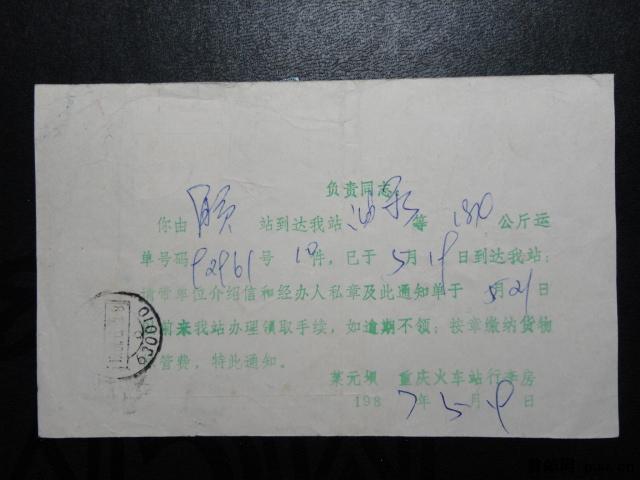 负责同志:
你由 站到达我站油 等180公斤运
单号码92961号10件，已于5月19日到达我站；
请带单位介绍信和经办人私章及此通知单于5月21日
前来我站办理领取手续，如逾期不领；按章缴纳货物
管费，特此通知。
菜元坝 重庆火车站行李房
1987年5月19日
630010